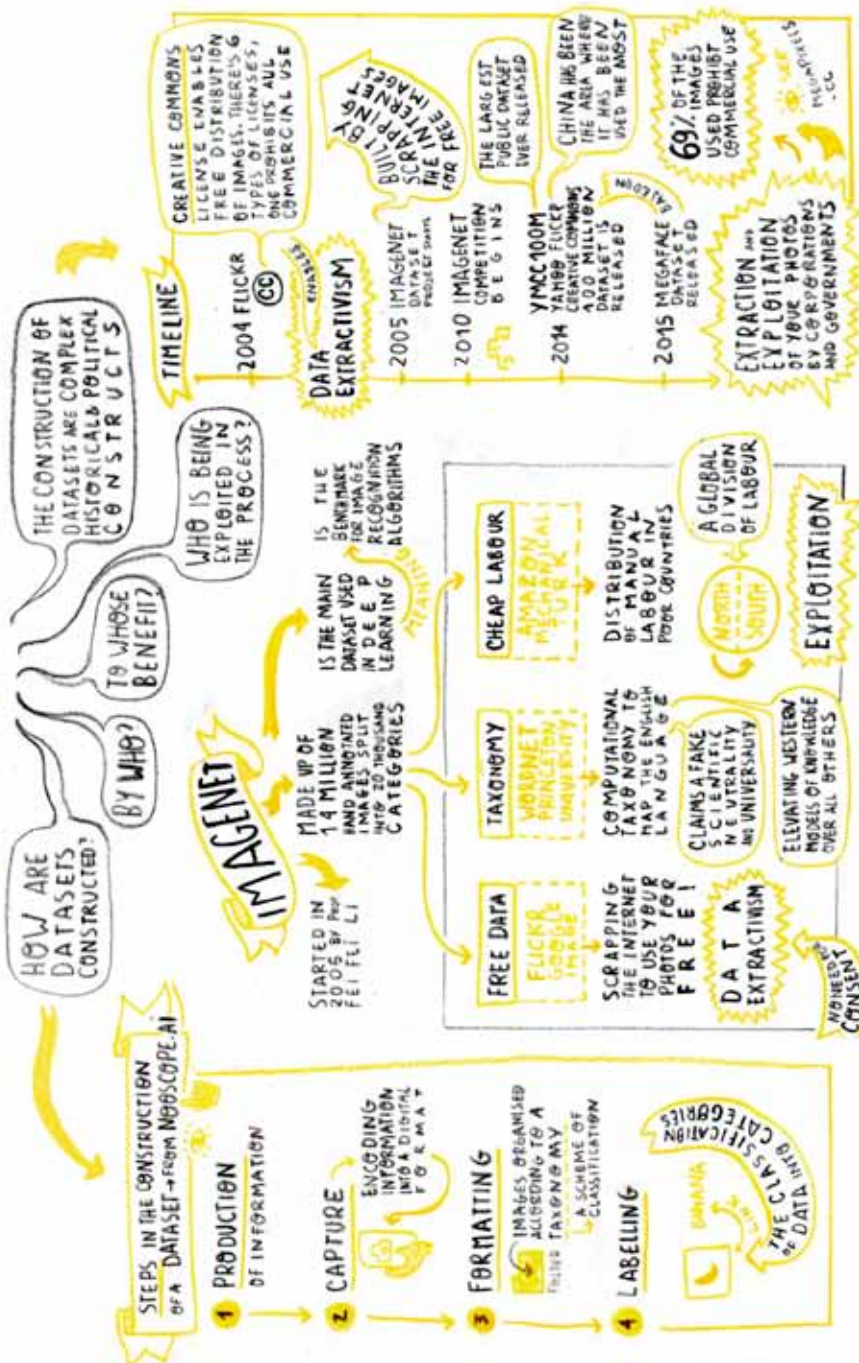 HOW ARE
DATASETS
CONSTRUCTED?
BY WHO?
TO WHOSE
BENEFIT?
WHO IS BEING
EXPLOITED IN
THE PROCESS?
THE CONSTRUCTION OF
DATASETS ARE COMPLEX
HISTORICAL & POLITICAL
CONSTRUCTS
STEPS IN THE CONSTRUCTION
OF A DATASET → FROM NOOSCOPE.AI
1 PRODUCTION
OF INFORMATION
2 CAPTURE
ENCODING
INFORMATION
INTO A DIGITAL
FORMAT
3 FORMATTING
IMAGES ORGANISED
ACCORDING TO A
TAXONOMY
A SCHEME OF
CLASSIFICATION
FOLDER
4 LABELLING
BANANA
LINK
THE CLASSIFICATION
OF DATA INTO CATEGORIES
IMAGENET
STARTED IN
2005 BY PROF
FEI FEI LI
MADE UP OF
14 MILLION
HAND ANNOTATED
IMAGES SPLIT
INTO 20 THOUSAND
CATEGORIES
IS THE MAIN
DATASET USED
IN DEEP
LEARNING
MEANING
IS THE
BENCHMARK
FOR IMAGE
RECOGNITION
ALGORITHMS
FREE DATA
FLICKR
GOOGLE
IMAGE
SCRAPPING
THE INTERNET
TO USE YOUR
PHOTOS FOR
FREE!
DATA
EXTRACTIVISM
NO NEED FOR
CONSENT
TAXONOMY
WORDNET
PRINCETON
UNIVERSITY
COMPUTATIONAL
TAXONOMY TO
MAP THE ENGLISH
LANGUAGE
CLAIMS A FAKE
SCIENTIFIC
NEUTRALITY
AND UNIVERSALITY
ELEVATING WESTERN
MODELS OF KNOWLEDGE
OVER ALL OTHERS
CHEAP LABOUR
AMAZON
MECHANICAL
TURK
DISTRIBUTION
OF MANUAL
LABOUR IN
POOR COUNTRIES
NORTH
SOUTH
A GLOBAL
DIVISION
OF LABOUR
EXPLOITATION
TIMELINE
2004 FLICKR
CC
ENABLES
CREATIVE COMMONS
LICENSE ENABLES
FREE DISTRIBUTION
OF IMAGES. THERE'S 6
TYPES OF LICENSES,
ONE PROHIBITS ALL
COMMERCIAL USE
DATA
EXTRACTIVISM
2005 IMAGENET
DATASET
PROJECT STARTS
BUILT BY
SCRAPPING
THE INTERNET
FOR FREE IMAGES
2010 IMAGENET
COMPETITION
BEGINS
2014
YMCC100M
YAHOO FLICKR
CREATIVE COMMONS
100 MILLION
DATASET IS
RELEASED
THE LARGEST
PUBLIC DATASET
EVER RELEASED
2015 MEGAFACE
DATASET
RELEASED
CHINA HAS BEEN
THE AREA WHERE
IT HAS BEEN
USED THE MOST
EXTRACTION AND
EXPLOITATION
OF YOUR PHOTOS
BY CORPORATIONS
AND GOVERNMENTS
69% OF THE
IMAGES
USED PROHIBIT
COMMERCIAL USE
SEE
MEGAPIXELS
.CC